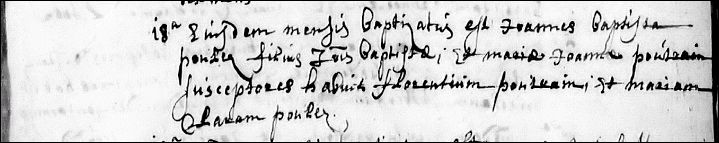 18ª Eiusdem mensis baptizatus est Joannes baptista
poutez filius Jois baptistæ, et mariæ Joanne poutrain
susceptores habuit florentium poutrain, et mariam
Claram poutez,